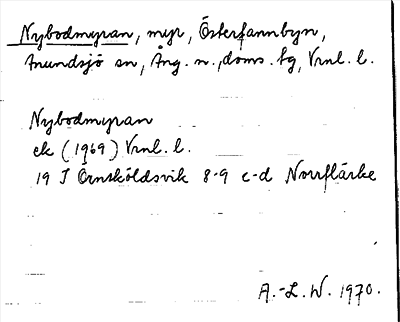 Nybodmyran, myr, Österfannbyn,
Anundsjö sn, Ång. n., doms. hg, Vrnl. l.
Nybodmyran
ek (1969) Vrnl. l.
19 I Örnsköldsvik 8-9 c-d Norrflärke
A.-L. W. 1970.